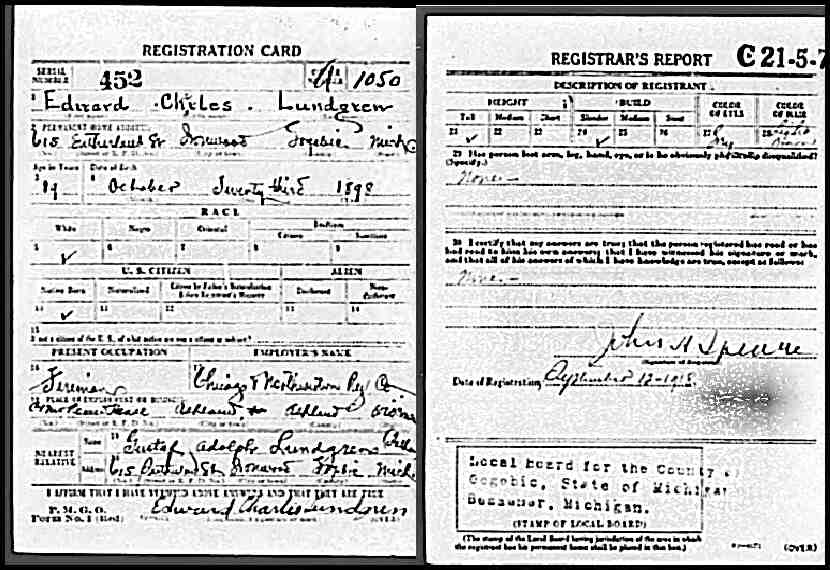 REGISTRATION CARD
SERIAL NUMBER 452
1050
Edward Charles Lundgren
PERMANENT HOME ADDRESS
615 St Ironwood Gogebic Mich
Age in Years Date of Birth
19 October Twenty third 1898
RACE
White Negro Oriental Indian
Citizen
5 ✓ 6 7 8 9
U. S. CITIZEN ALIEN
Native Born Naturalized Citizen by Father's Naturalization Before Registrant's Majority Declarant Non-declarant
10 ✓ 11 12 13 14
15
If not a citizen of the U. S., of what nation are you a citizen or subject?
PRESENT OCCUPATION EMPLOYER'S NAME
Fireman Chicago & Northwestern Ry Co
PLACE OF EMPLOYMENT OR BUSINESS
Ashland Ashland
NEAREST RELATIVE
Name Gustaf Adolph Lundgren
Address 615 St Ironwood Gogebic Mich
I AFFIRM THAT I HAVE VERIFIED ABOVE ANSWERS AND THAT THEY ARE TRUE
P. M. G. O.
Form No. 1 (Red) Edward Charles Lundgren
(OVER)
REGISTRAR'S REPORT C 21-5-7
DESCRIPTION OF REGISTRANT
HEIGHT BUILD COLOR OF EYES COLOR OF HAIR
Tall Medium Short Slender Medium Stout
21 ✓ 22 23 24 ✓ 25 26 27 28
29 Has person lost arm, leg, hand, eye, or is he obviously physically disqualified?
(Specify.)
None
30 I certify that my answers are true; that the person registered has read or has
had read to him his own answers; that I have witnessed his signature or mark,
and that all of his answers of which I have knowledge are true, except as follows:
None
John
Date of Registration September 12-1918
Local Board for the County of
Gogebic, State of Michigan
Bessemer, Michigan.
(STAMP OF LOCAL BOARD)
(The stamp of the Local Board having jurisdiction of the area in which
the registrant has his permanent home shall be placed in this box.)
(OVER)